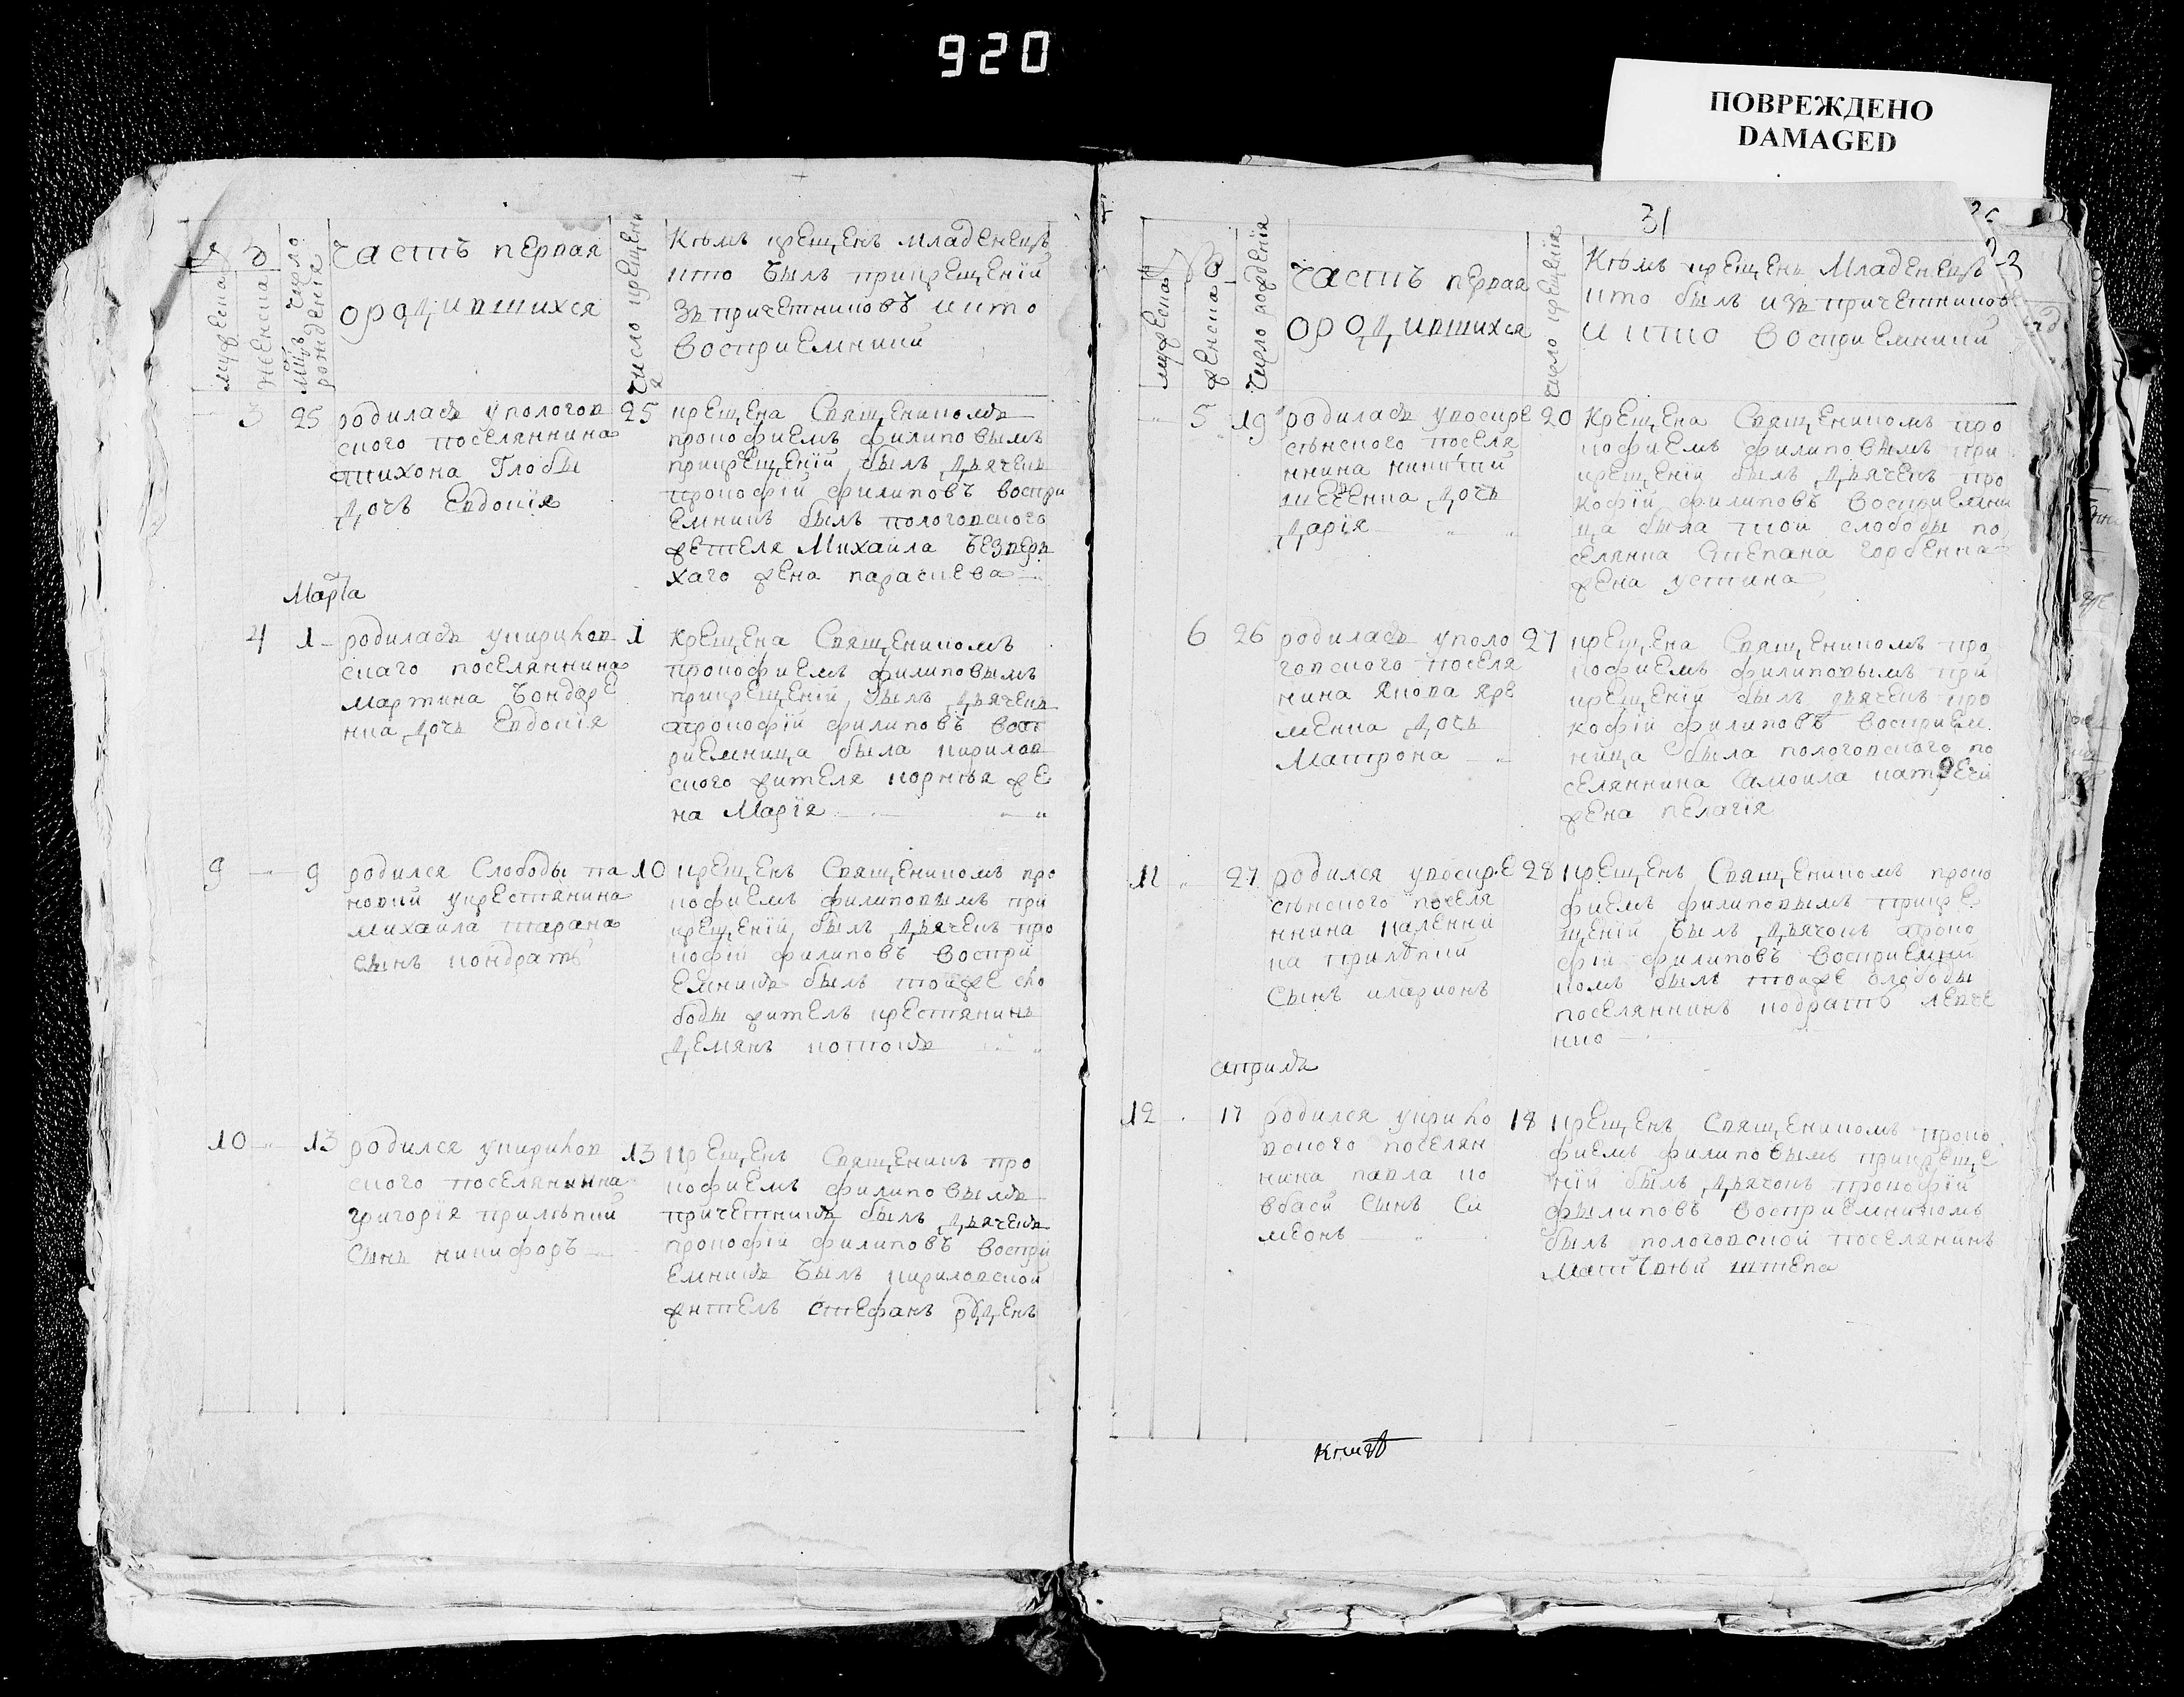 920
ПОВРЕЖДЕНО
DAMAGED
мужеска
женска
мцъ число рождения
Часть первая
ородившихся
Число крещени
я
Кѣмъ крещенъ младенецъ
кто былъ прикрещеніи
зъ причетниковъ икто
восприемники
3 25 родилась упологов
ского поселяннина
тихона Глобы
дочь Евдокія
25 крещена Священикомъ
прокофиемъ филиповымъ
прикрещеніи былъ дьячекъ
прокофій филиповъ воспри
емникъ былъ пологовского
жетеля Михаила безверх
хаго жена параскева
Марта
4 1 родилась укирилов
скаго поселяннина
мартина бондаре
нка дочь Евдокія
1 Крещена Священикомъ
прокофиемъ филиповымъ
прикрещеніи былъ дьячекъ
прокофій филиповъ восп
риемница была кирилов
ского жителя корнѣя же
на Марія
9 9 родился Слободы па
новки укрестянина
михаила тарана
сынъ кондратъ
10 крещенъ Священикомъ про
кофиемъ филиповымъ при
крещеніи былъ дьячекъ про
кофій филиповъ воспри
емникъ былъ тойже сло
боды жителъ крестянинъ
демянъ
10 13 родился укирилов
ского поселяннина
григорія прилѣпки
Сынъ никифоръ
13 Крещенъ Священикъ про
кофиемъ филиповымъ
причетникъ былъ дьячекъ
прокофій филиповъ воспри
емникъ былъ кириловской
жителъ стефанъ
31
мужеска
женска
число рожденія
Часть первая
ородившихся
число крещенія
Кѣмъ крещенъ Младенецъ
кто былъ изъ причетников
и кто восприемники
5 19 родилась увоскре
сѣнского поселя
ннина никиты
шевченка дочь
дарія
20 Крещена Священикомъ про
кофиемъ филиповымъ при
крещеніи былъ дьячекъ про
кофій филиповъ восприемни
ца была той слободы по
селянна Степана горбенка
жена устина
6 26 родилась уполо
говского поселя
нина Якова яре
менка дочь
Матрона
27 крещена Священикомъ про
кофиемъ филиповымъ при
крещеніи былъ дьячекъ про
кофій филиповъ восприем
ница была пологовского по
селяннина Самоила
жена пелагія
11 27 родился увоскре
сѣнского поселя
ннина каленни
ка прилѣпки
Сынъ иларионъ
28 крещенъ Священикомъ проко
фиемъ филиповымъ прикре
щеніи былъ дьячокъ проко
фій филиповъ восприемни
комъ былъ тойже слободы
поселяннинъ кодратъ левче
нко
априль
12 17 родился укирило
вского поселян
нина павла ко
вбаси Сынъ Си
меонъ
18 Крещенъ Священикомъ проко
фиемъ филиповымъ прикреще
ніи былъ дьячокъ прокофій
филиповъ восприемникомъ
былъ пологовской поселянинъ
Матвѣй штепа